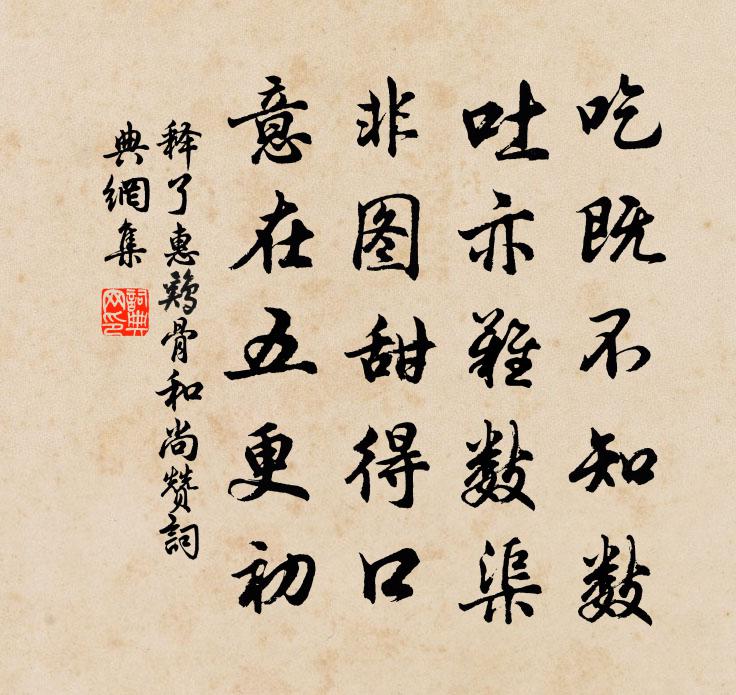 吃既不知数
吐亦难数渠
非图甜得口
意在五更初
释了惠鸡骨和尚赞词
典網集
詞典網印